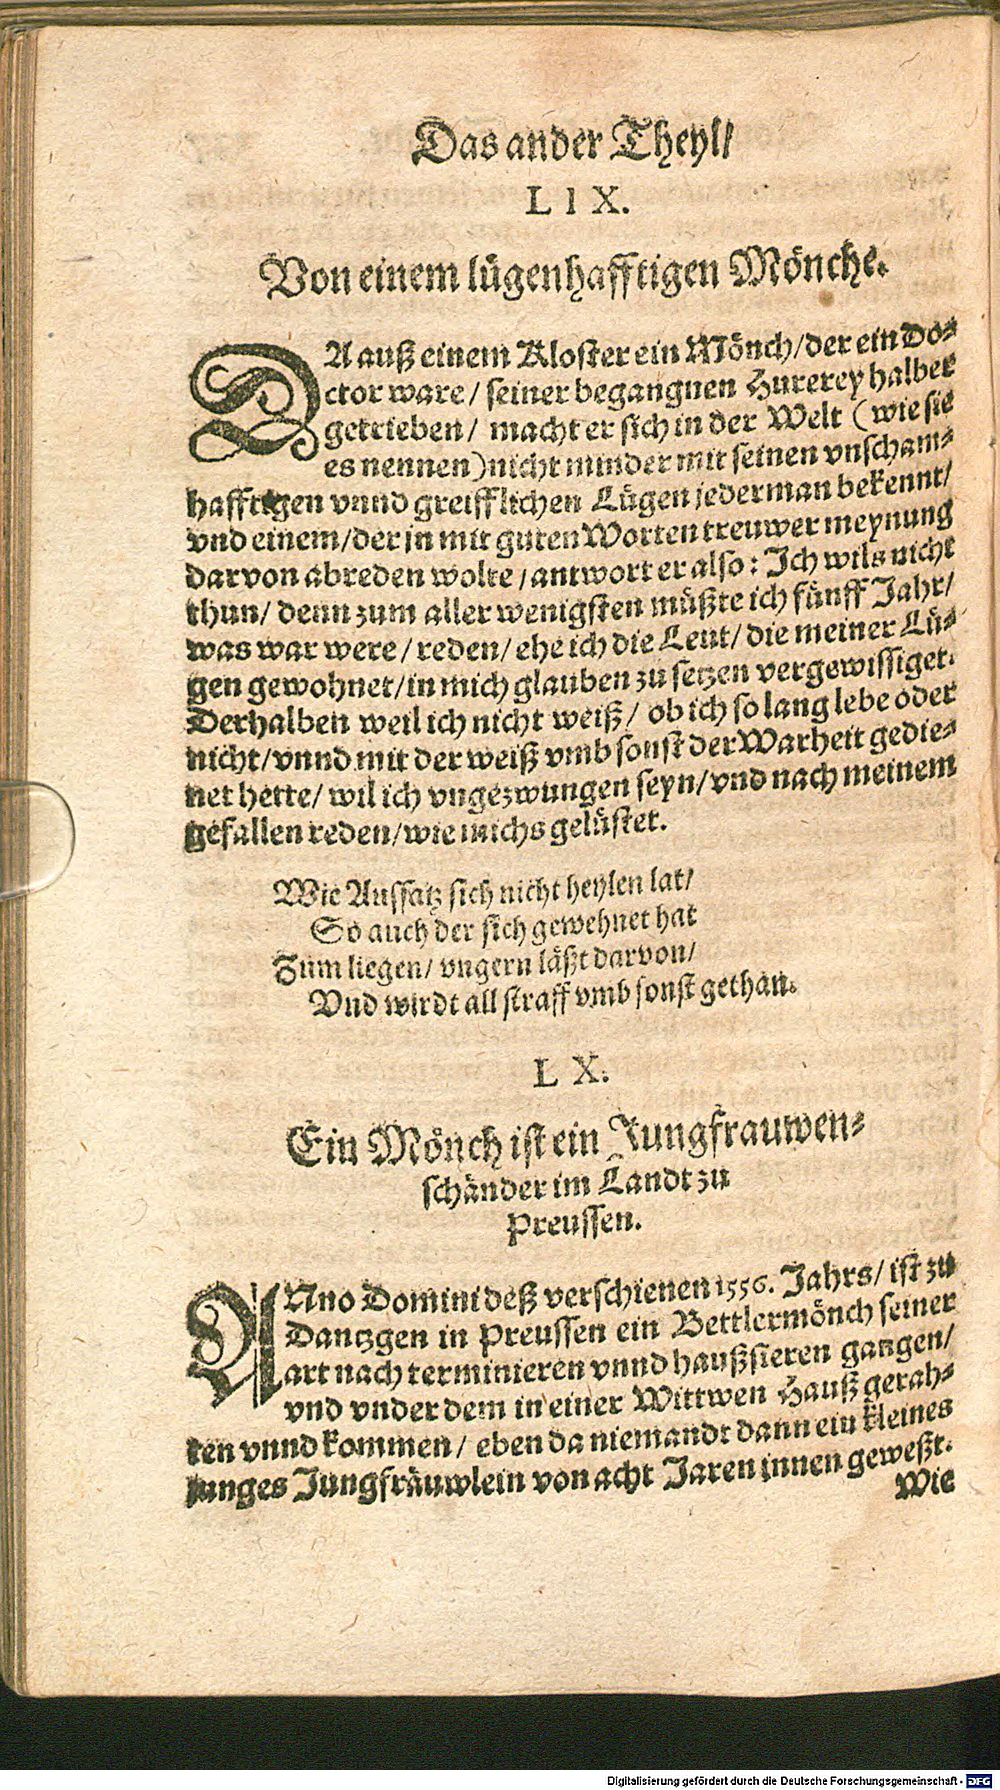 Das ander Theyl/
LIX.
Von einem lügenhafftigen Mönche.
DA auß einem Kloster ein Mönch/der ein Do-
ctor ware/ seiner begangnen Hurerey halber
getrieben/ macht er sich in der Welt (wie sie
es nennen) nicht minder mit seinen vnscham-
hafftigen vnnd greifflichen Lügen jederman bekennt/
vnd einem/der jn mit guten Worten treuwer meynung
darvon abreden wolte/antwort er also: Ich wils nicht
thun/ denn zum aller wenigsten müßte ich fünff Jahr/
was war were/reden/ehe ich die Leut/die meiner Lü-
gen gewohnet/in mich glauben zu setzen vergewissiget.
Derhalben weil ich nicht weiß/ ob ich so lang lebe oder
nicht/vnnd mit der weiß vmb sonst der Warheit gedie-
net hette/ wil ich vngezwungen seyn/vnd nach meinem
gefallen reden/wie michs gelüstet.
Wie Aussatz sich nicht heylen lat/
So auch der sich gewehnet hat
Zum liegen/ vngern läßt darvon/
Vnd wirdt all straff vmb sonst gethan.
LX.
Ein Mönch ist ein Jungfrauwen-
schänder im Landt zu
Preussen.
ANno Domini deß verschienen 1556. Jahrs/ ist zu
Dantzgen in Preussen ein Bettlermönch seiner
art nach terminieren vnnd haußsieren gangen/
vnd vnder dem in einer Wittwen Hauß gerah-
ten vnnd kommen/ eben da niemandt dann ein kleines
junges Jungfräuwlein von acht Jaren innen geweßt.
Wie
Digitalisierung gefördert durch die Deutsche Forschungsgemeinschaft - DFG